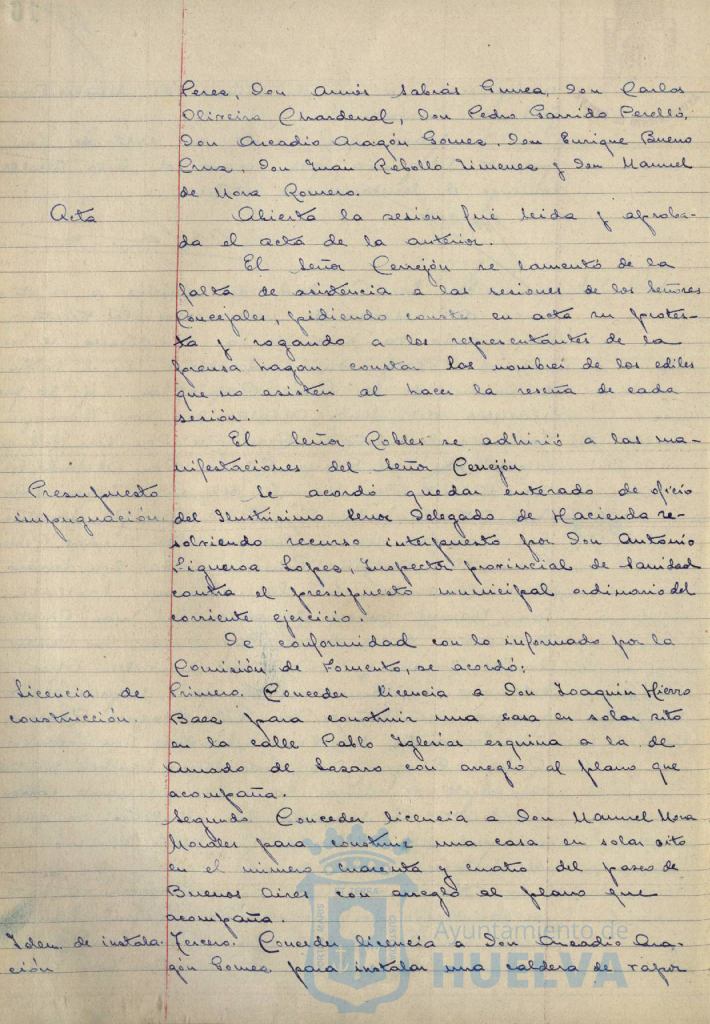 Perez, Don Amós Sabrás Gurrea, Don Carlos
Oliveira Chardenal, Don Pedro Garrido Perelló,
Don Arcadio Aragón Gomez, Don Enrique Bueno
Cruz, Don Juan Rebollo Jimenez y Don Manuel
de Mora Romero.
Acta
Abierta la sesion fué leida y aproba-
da el acta de la anterior.
El Señor Cerrejón se lamentó de la
falta de asistencia a las sesiones de los Señores
Concejales, pidiendo conste en acta su protes-
ta y rogando a los representantes de la
prensa hagan constar los nombres de los ediles
que no asisten al hacer la reseña de cada
sesión.
El Señor Robles se adhirió a las ma-
nifestaciones del Señor Cerrejón
Presupuesto
impugnación.
Se acordó quedar enterado de oficio
del Ilustrisimo Señor Delegado de Hacienda re-
solviendo recurso interpuesto por Don Antonio
Figueroa Lopez, Inspector provincial de Sanidad
contra el presupuesto municipal ordinario del
corriente ejercicio.
De conformidad con lo informado por la
Comisión de Fomento, se acordó:
Licencia de
construcción.
Primero. Conceder licencia a Don Joaquin Hierro
Baez para construir una casa en solar sito
en la calle Pablo Iglesias esquina a la de
Amado de Lazaro con arreglo al plano que
acompaña.
Segundo Conceder licencia a Don Manuel Mora
Morales para construir una casa en solar sito
en el número cuarenta y cuatro del paseo de
Buenos Aires con arreglo al plano que
acompaña.
Idem. de instala-
ción
Tercero. Conceder licencia a Don Arcadio Ara-
gón Gomez para instalar una caldera de vapor
Ayuntamiento de
HUELVA